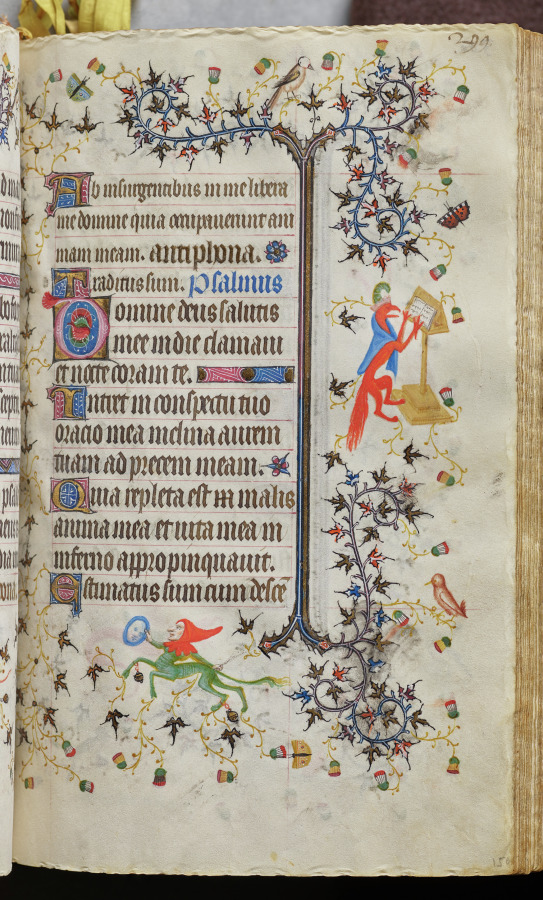 299
Ab insurgentibus in me libera
me domine quia occupauerunt ani
mam meam. antiphona.
Traditus sum. Psalmus
Domine deus salutis
mee in die clamaui
et nocte coram te.
Intret in conspectu tuo
oracio mea inclina aurem
tuam ad precem meam.
Quia repleta est in malis
anima mea et uita mea in
inferno appropinquauit.
Estimatus sum cum descē